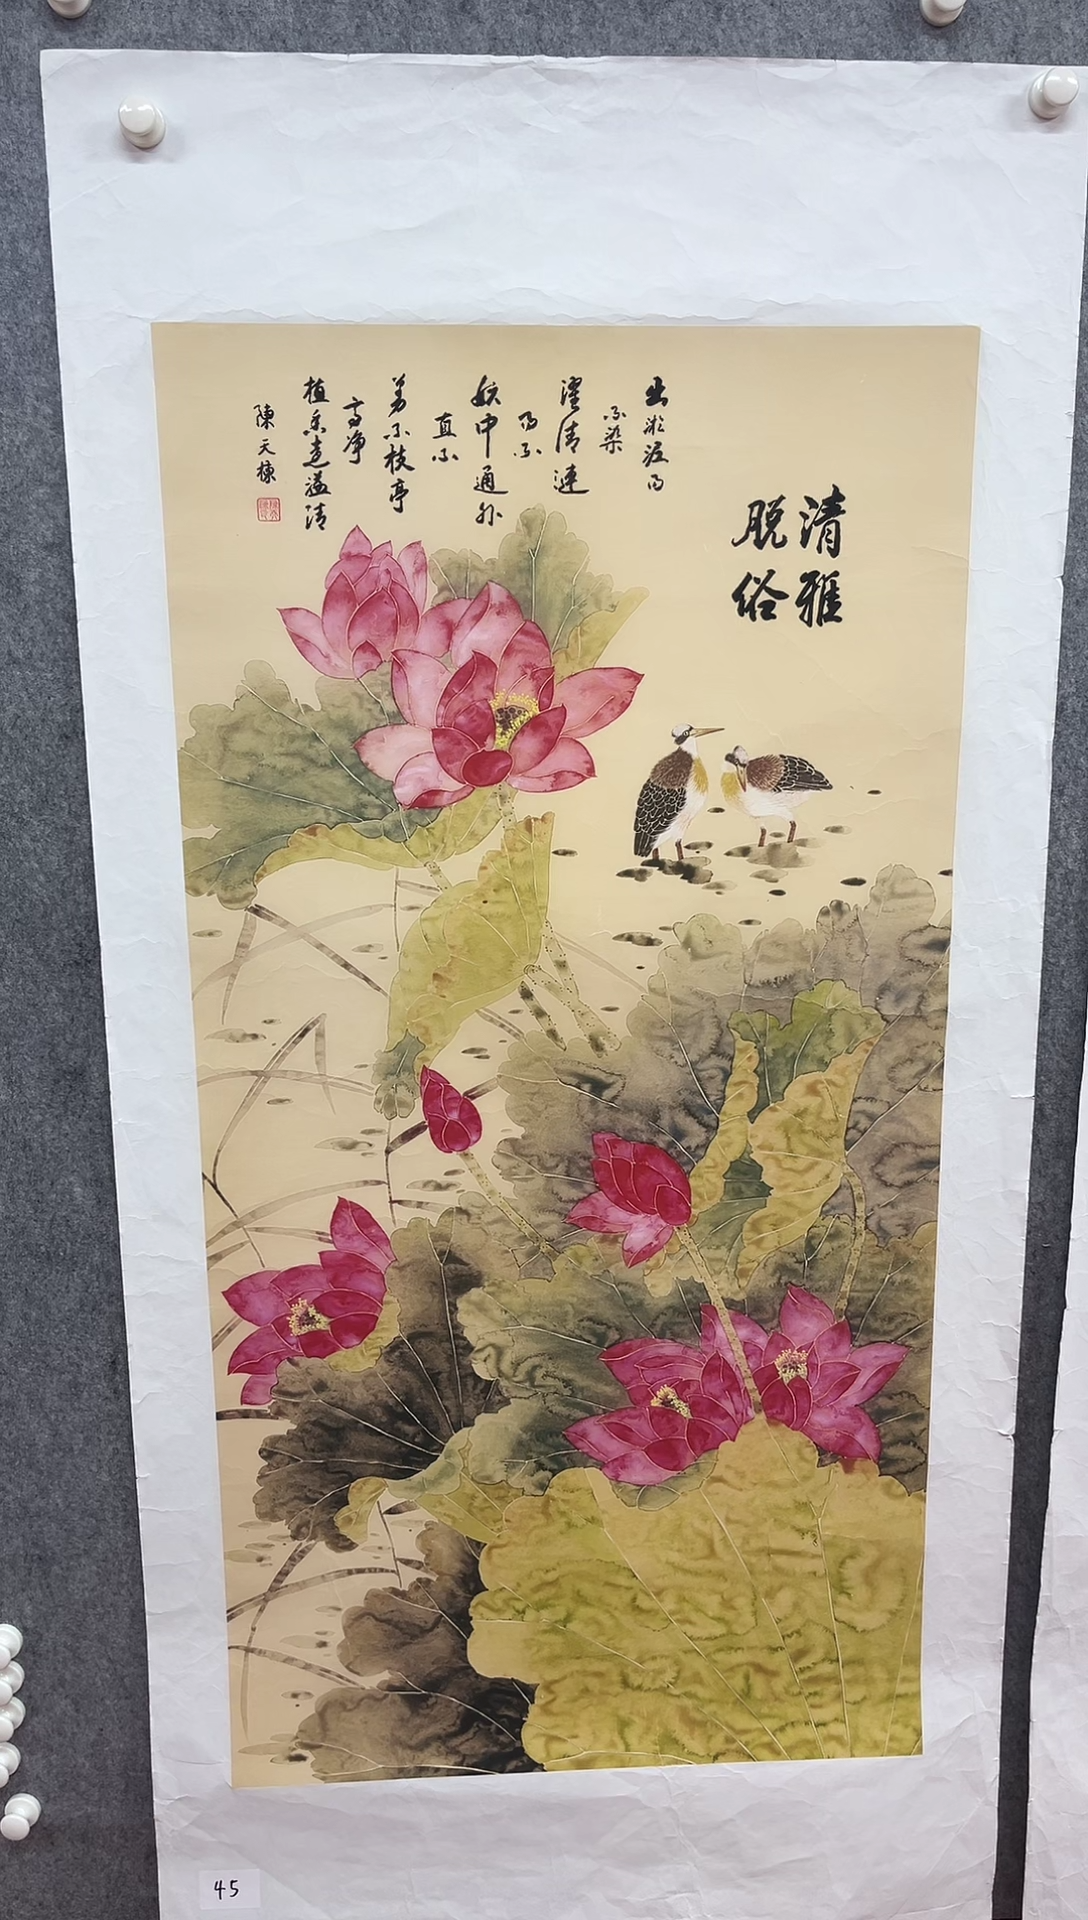 清雅
脱俗
出淤泥而
不染
濯清漣
而不
妖中通外
直不
蔓不枝亭
亭净
植香遠溢清
陳天棟
45